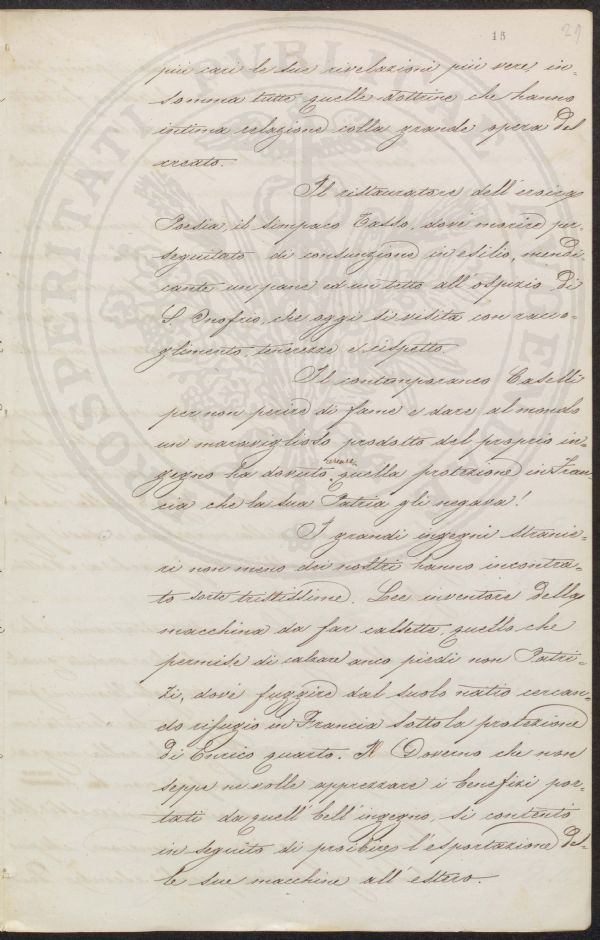 15
27
più cari le sue rivelazioni più vere, in-
somma tutte quelle dottrine che hanno
intima relazione colla grande opera del
creato.
Il ristauratore dell'eroica
Poesia, il simpaco Tasso, dové morire per-
seguitato di consunzione in esilio, mendi-
cante un pane ed un tetto all'ospizio di
S. Onofrio, che oggi si visita con racco-
glimento, tenerezze e rispetto.
Il contemporaneo Caselli
per non perire di fame e dare al mondo
un maraviglioso prodotto del proprio in-
gegno ha dovuto cercare quella protezione in Fran-
cia che la sua Patria gli negava!
I grandi ingegni stranie-
ri non meno dei nostri hanno incontra-
to sorte tristissime. Lee inventore della
macchina da far calsette, quello che
permise di calzare anco piedi non Patri-
zi, dové fuggire dal suolo natio cercan-
do rifugio in Francia sotto la protezione
di Enrico quarto. Il Governo che non
seppe ne volle apprezzare i benefizi por-
tati da quell'bell'ingegno, si contentò
in seguito di proibire l'esportazione del-
le sue macchine all'estero.
PROSPERITATI PUBLICAE